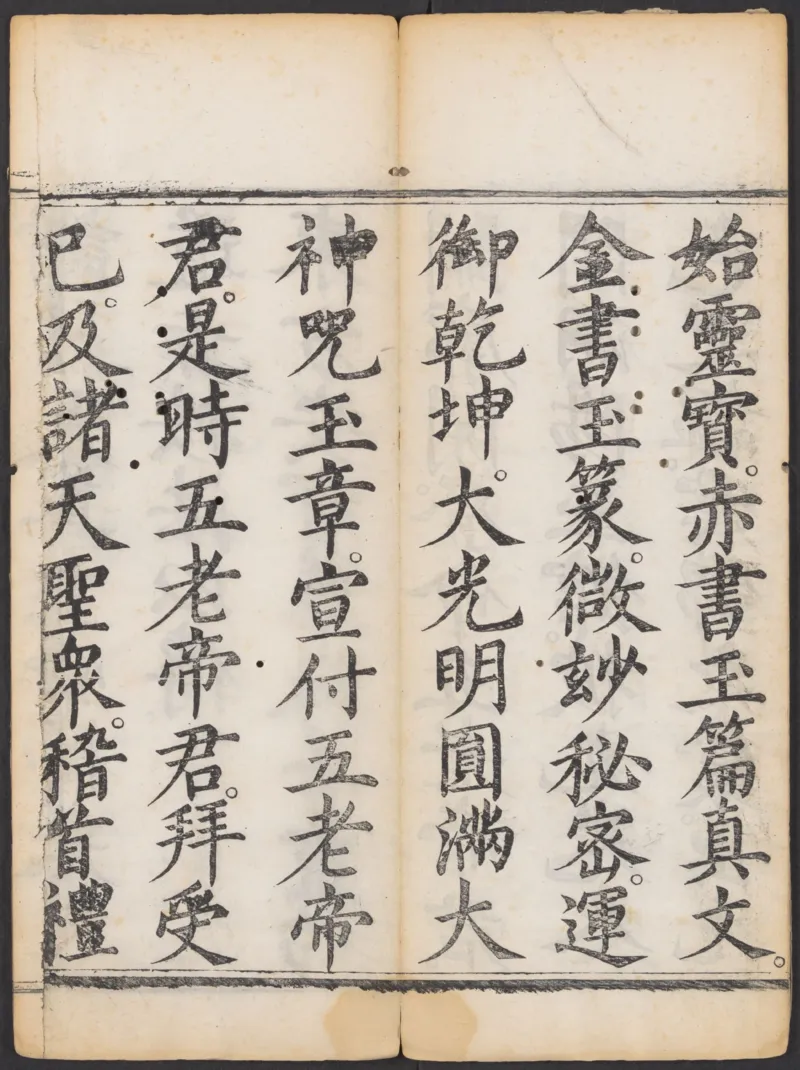 始靈寶。赤書玉篇真文。
金書玉篆。微玅秘密。運
御乾坤。大光明圓滿大
神咒玉章。宣付五老帝
君。是時五老帝君。拜受
已。及諸天聖衆。稽首禮